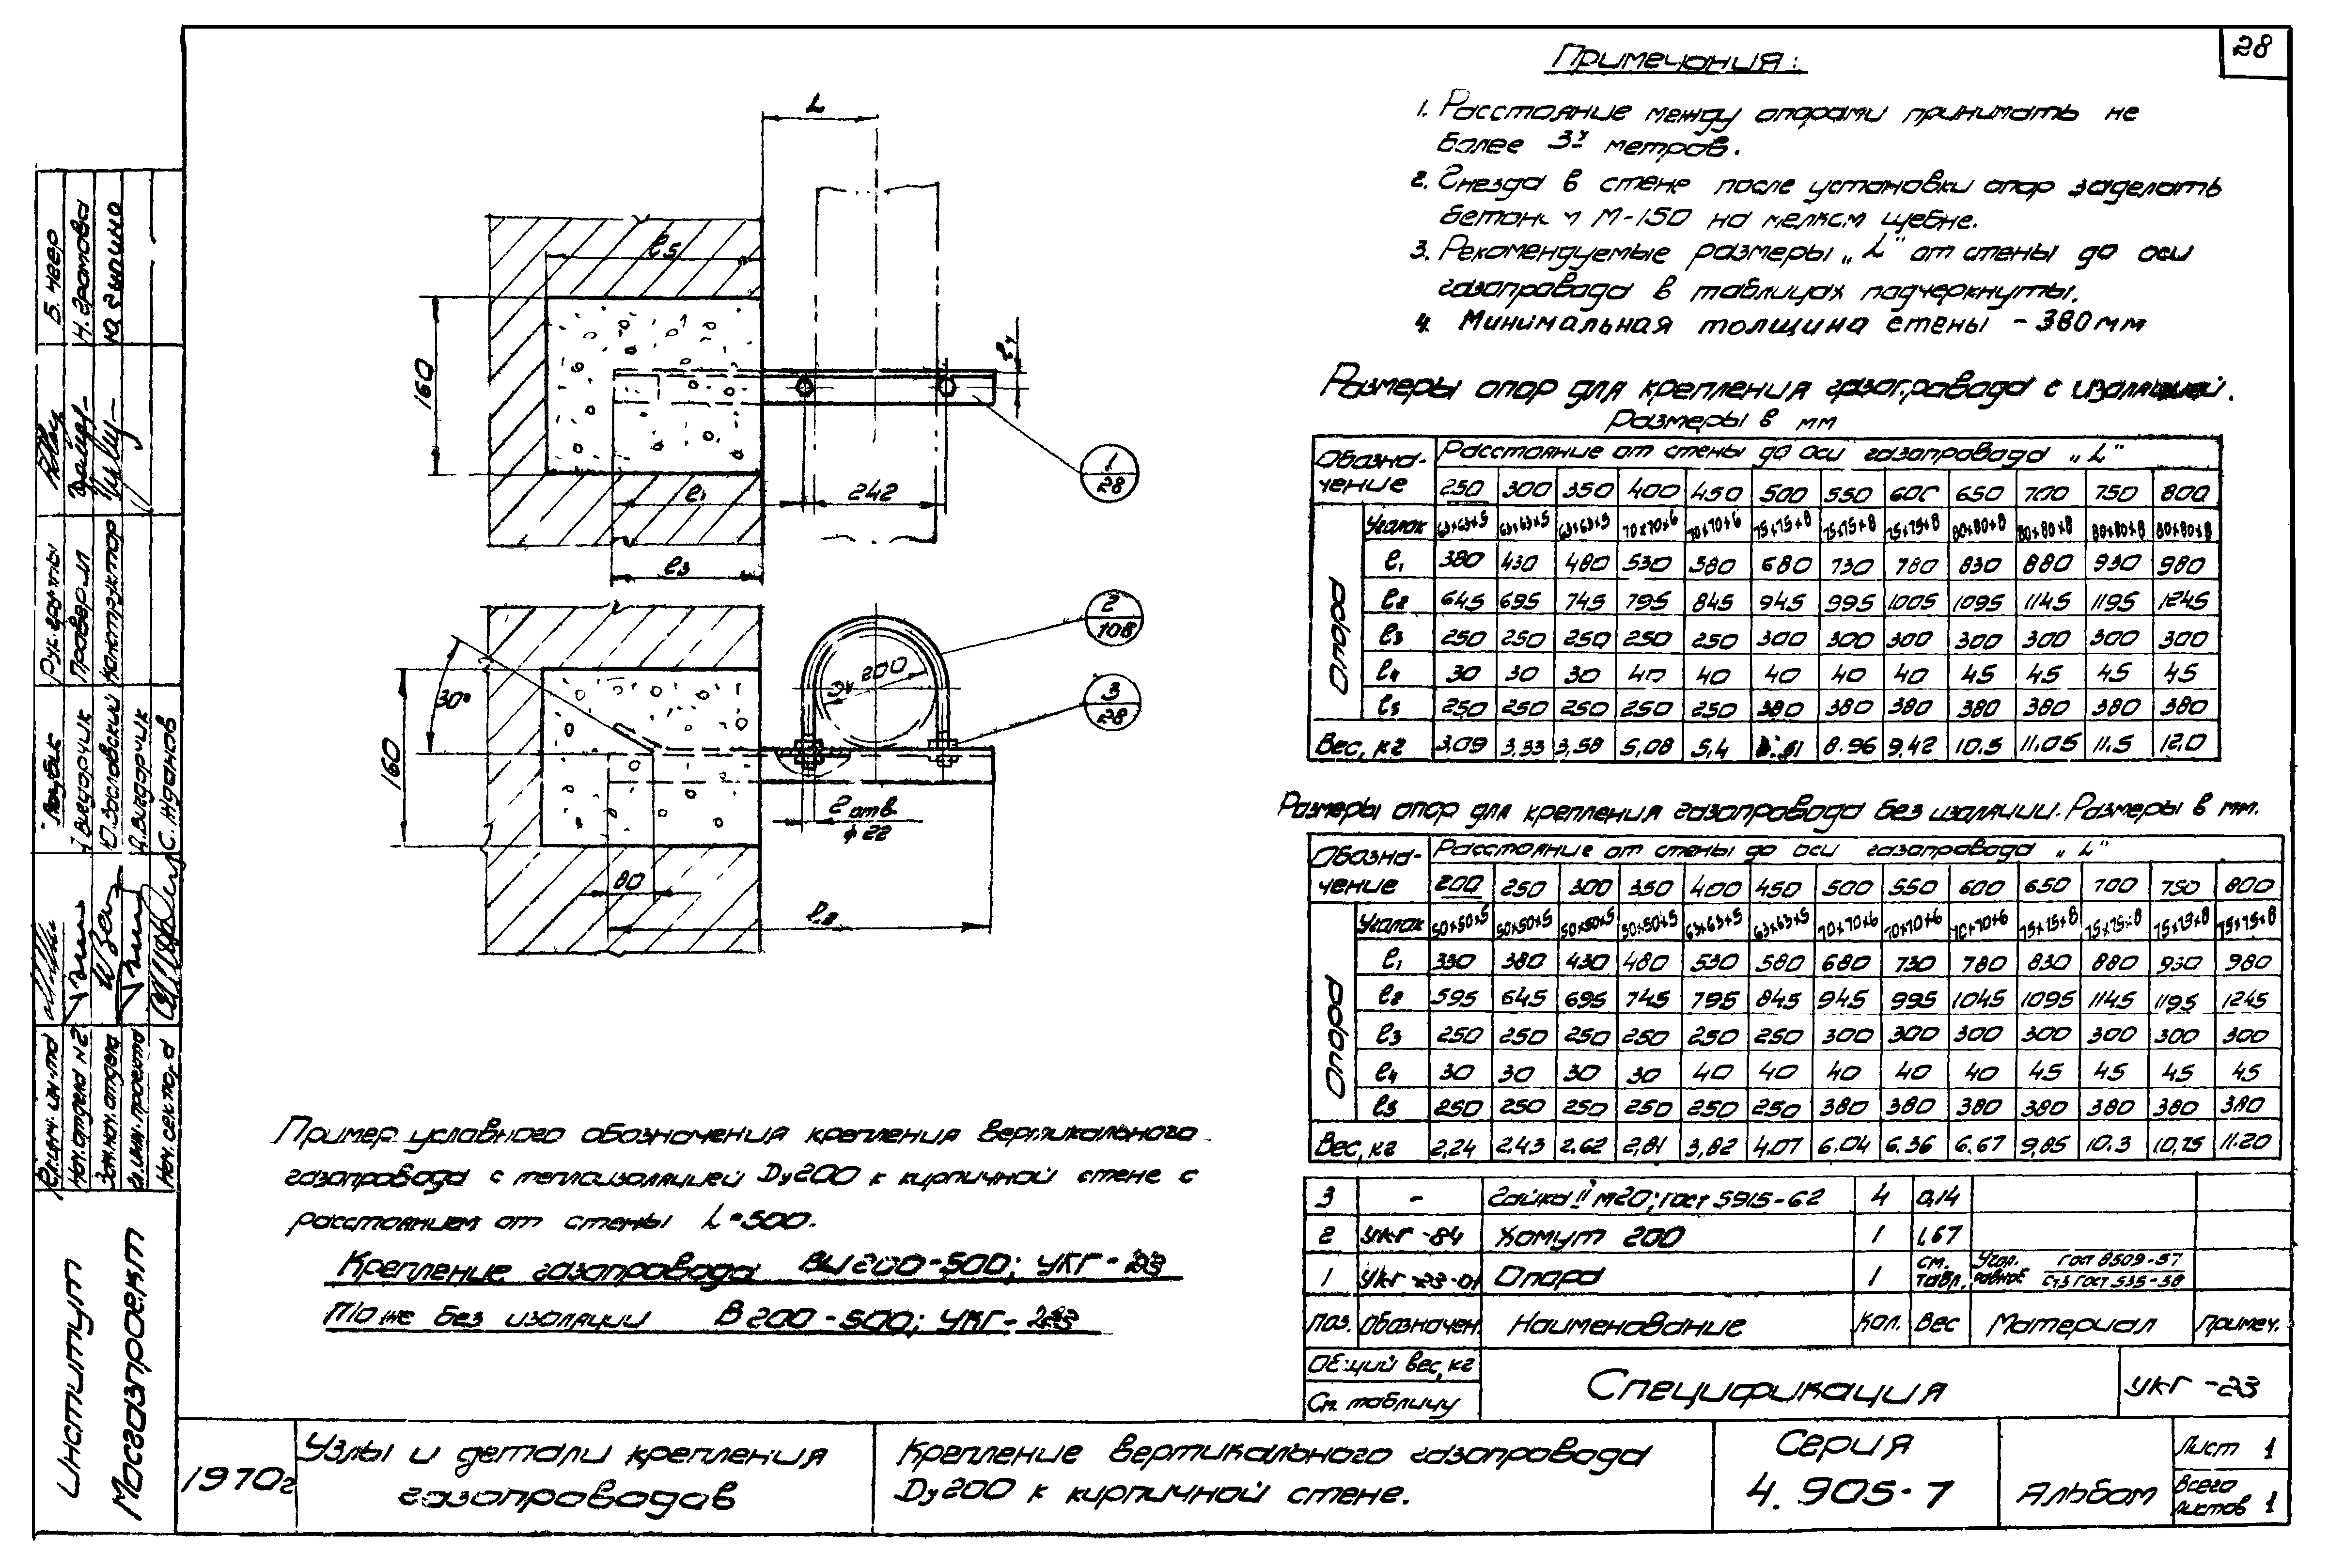 28
Примечания:
1. Расстояние между опорами принимать не
более 3х метров.
2. Гнезда в стене после установки опор заделать
бетоном М-150 на мелком щебне.
3. Рекомендуемые размеры „L" от стены до оси
газопровода в таблицах подчеркнуты.
4. Минимальная толщина стены - 380 мм
L
l5
160
l4
1
28
l1
242
l3
2
108
3
28
Ду 200
30°
160
2 отв.
ф 22
80
l2
Размеры опор для крепления газопровода с изоляцией.
Размеры в мм
Обозначение Расстояние от стены до оси газопровода „L"
250 300 350 400 450 500 550 600 650 700 750 800
Опора
Уголок 63×63×5 63×63×5 63×63×5 70×70×6 70×70×6 75×75×8 75×75×8 75×75×8 80×80×8 80×80×8 80×80×8 80×80×8
l1 380 430 480 530 580 680 730 780 830 880 930 980
l2 645 695 745 795 845 945 995 1005 1095 1145 1195 1245
l3 250 250 250 250 250 300 300 300 300 300 300 300
l4 30 30 30 40 40 40 40 40 45 45 45 45
l5 250 250 250 250 250 380 380 380 380 380 380 380
Вес, кг 3,09 3,33 3,58 5,08 5,4 8.96 9,42 10.5 11.05 11.5 12.0
Размеры опор для крепления газопровода без изоляции. Размеры в мм.
Обозначение Расстояние от стены до оси газопровода „L"
200 250 300 350 400 450 500 550 600 650 700 750 800
Опора
Уголок 50×50×5 50×50×5 50×50×5 50×50×5 63×63×5 63×63×5 70×70×6 70×70×6 70×70×6 75×75×8 75×75×8 75×75×8 75×75×8
l1 330 380 430 480 530 580 680 730 780 830 880 930 980
l2 595 645 695 745 795 845 945 995 1045 1095 1145 1195 1245
l3 250 250 250 250 250 250 300 300 300 300 300 300 300
l4 30 30 30 30 40 40 40 40 40 45 45 45 45
l5 250 250 250 250 250 250 380 380 380 380 380 380 380
Вес, кг 2,24 2,43 2.62 2,81 3,82 4.07 6.04 6.36 6.67 9,85 10.3 10,75 11.20
Пример условного обозначения крепления вертикального
газопровода с теплоизоляцией Ду200 к кирпичной стене с
расстоянием от стены L=500.
Крепление газопровода ВИ200-500; УКГ-23
То же без изоляции В200-500; УКГ-23
3 - Гайка II М20; ГОСТ 5915-62 4 0,14
2 УКГ-84 Хомут 200 1 1,67
1 УКГ-23-01 Опора 1 см. табл. Угол. равноб ГОСТ 8509-57 Ст3 ГОСТ 535-58
Поз. Обозначен. Наименование Кол. Вес Материал Примеч.
Общий вес, кг
См. таблицу
Спецификация
УКГ-23
1970г
Узлы и детали крепления
газопроводов
Крепление вертикального газопровода
Ду200 к кирпичной стене.
Серия
4.905-7
Альбом
Лист 1
Всего
листов 1
Институт
Мосгазпроект
Гл. инж. ин-та
Нач. отдела №2
Зам. нач. отдела
Гл. инж. проекта
Нач. сектора
А. Вигдорчик
Ю. Заславский
А. Вигдорчик
С. Жданов
Рук. группы
Проверил
Конструктор
Н. Громова